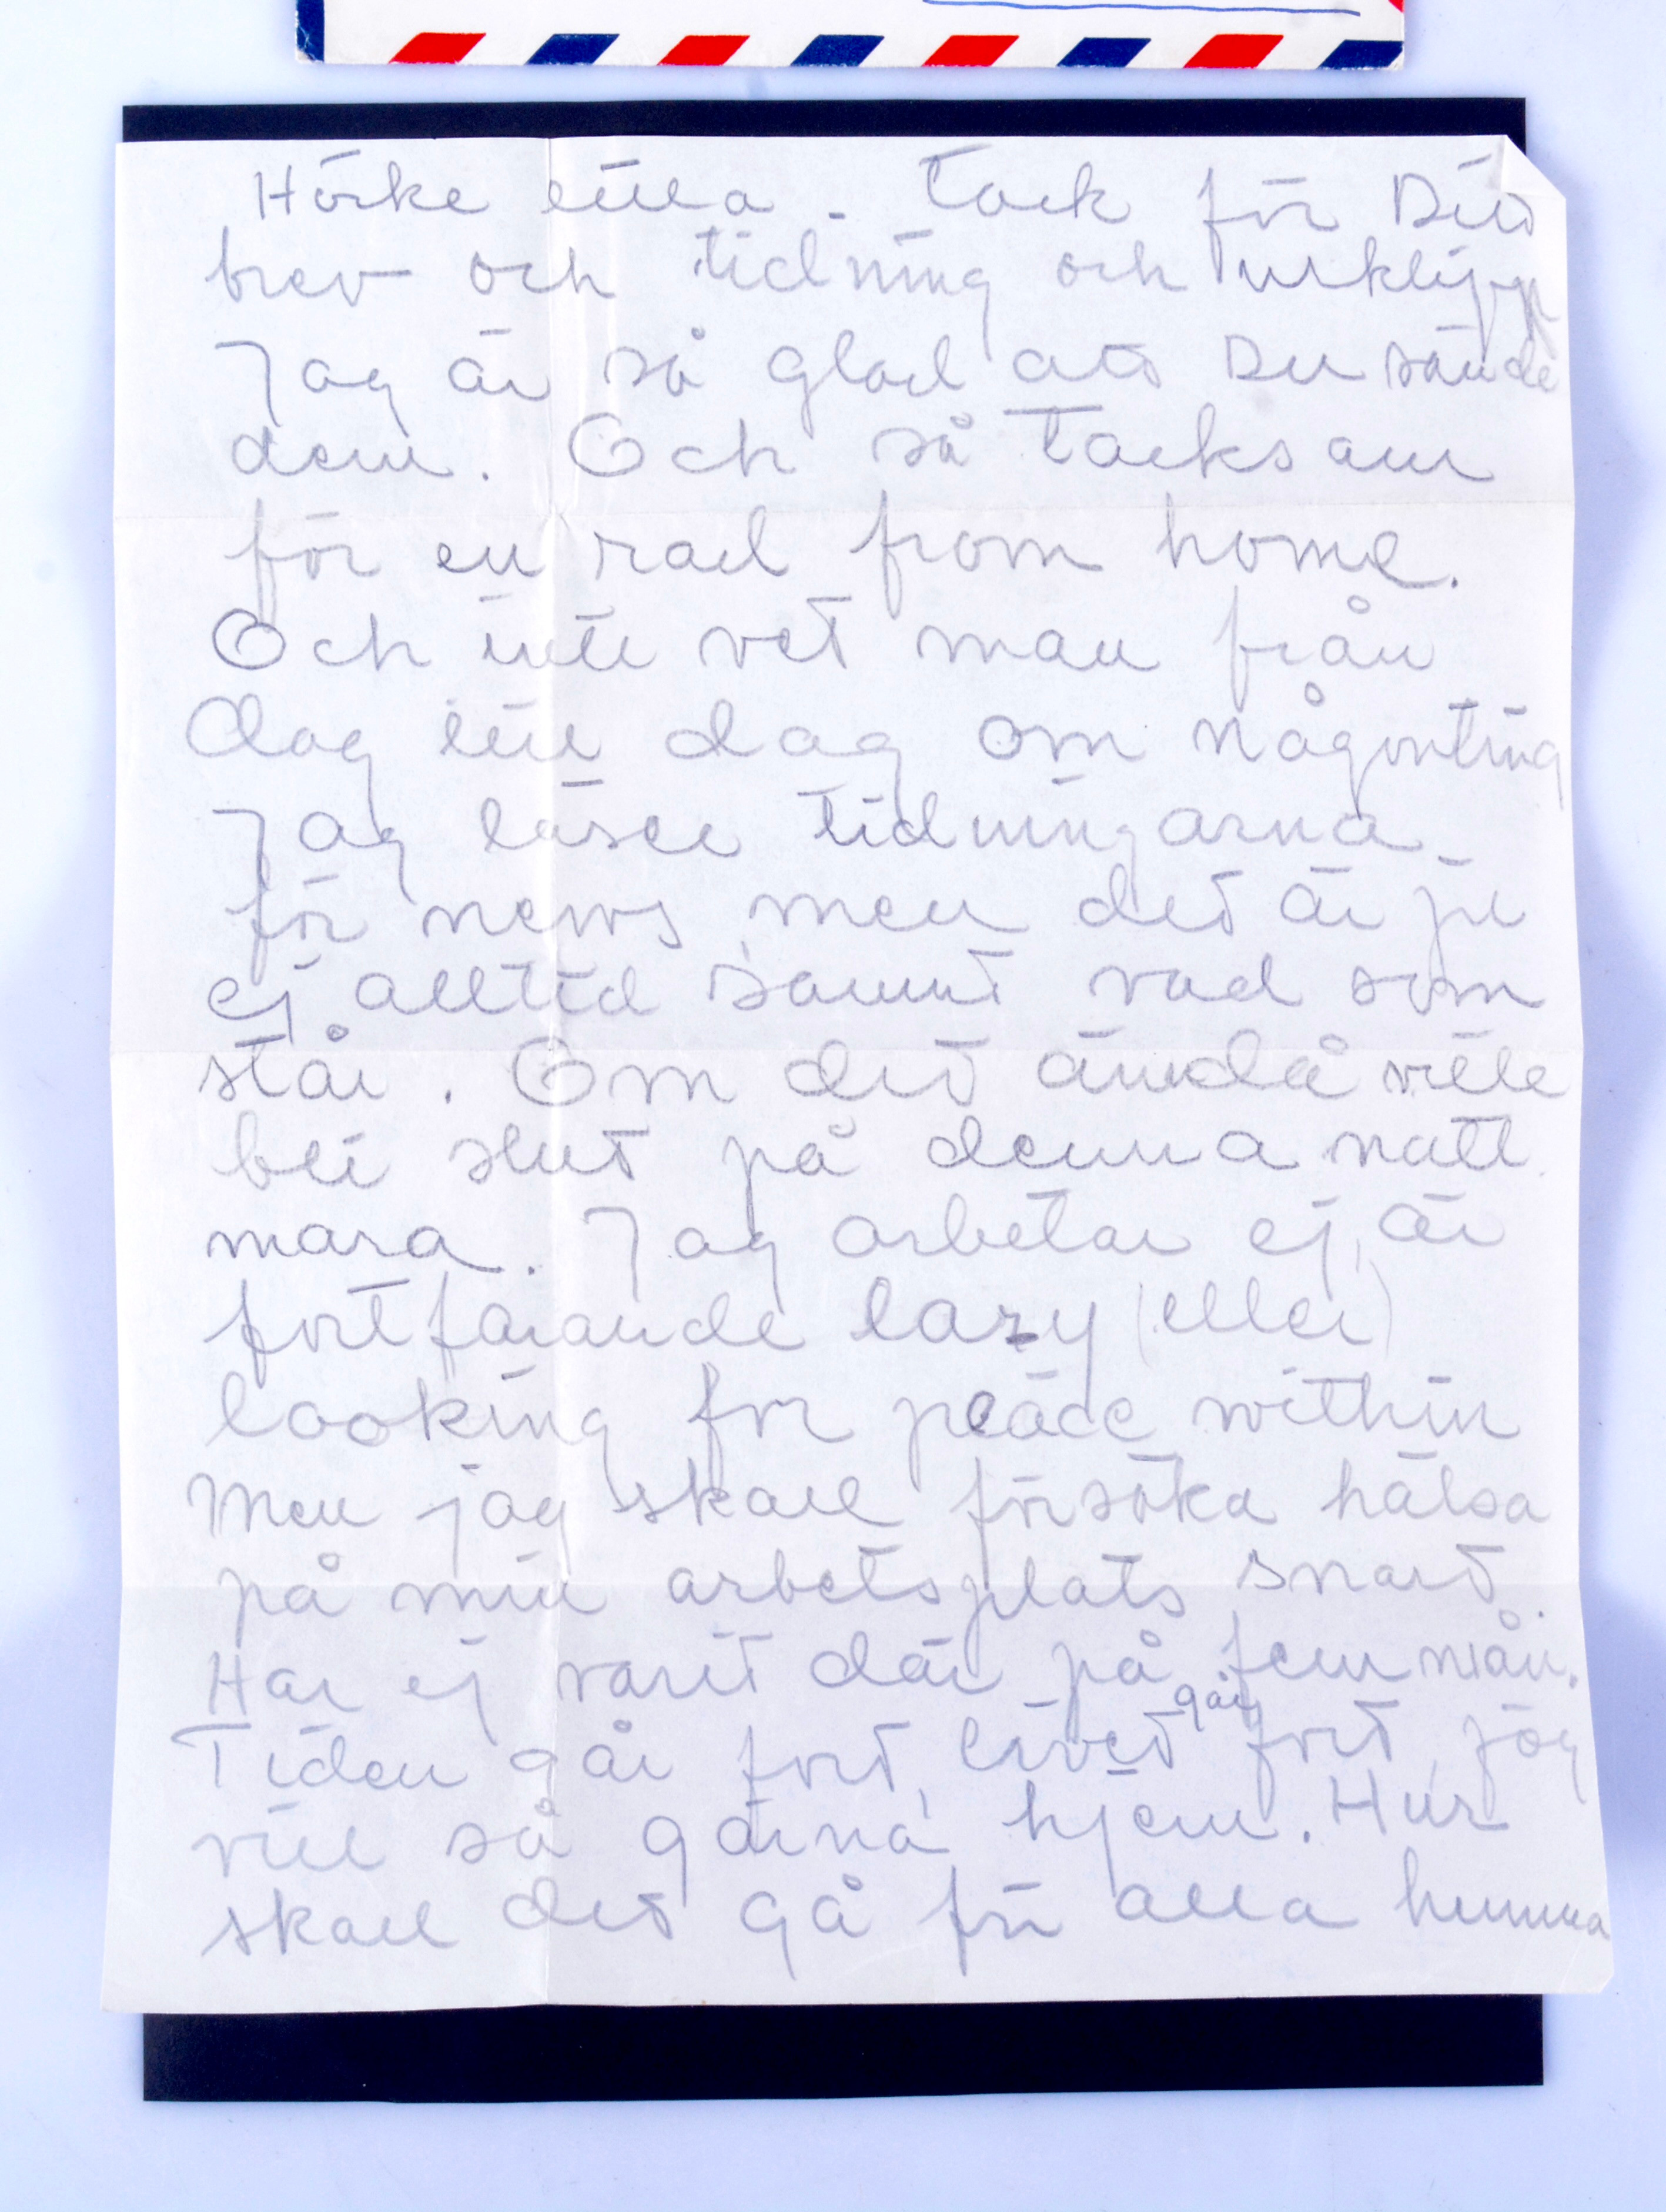 Hörke lilla - Tack för Ditt
brev och tidning och urklipp
Jag är så glad att Du sände
dem. Och så tacksam
för en rad from home.
Och inte vet man från
dag till dag om någonting
Jag läser tidningarna
för news, men det är ju
ej alltid sannt vad som
står. Om det ändå ville
bli slut på denna natt
mara. Jag arbetar ej, är
fortfarande lazy (eller)
looking for peace within
Men jag skall försöka hälsa
på min arbetsplats snart.
Har ej varit där på fem mån.
Tiden går fort, livet går fort, jag
vill så gärna hjem. Hur
skall det gå för alla hemma